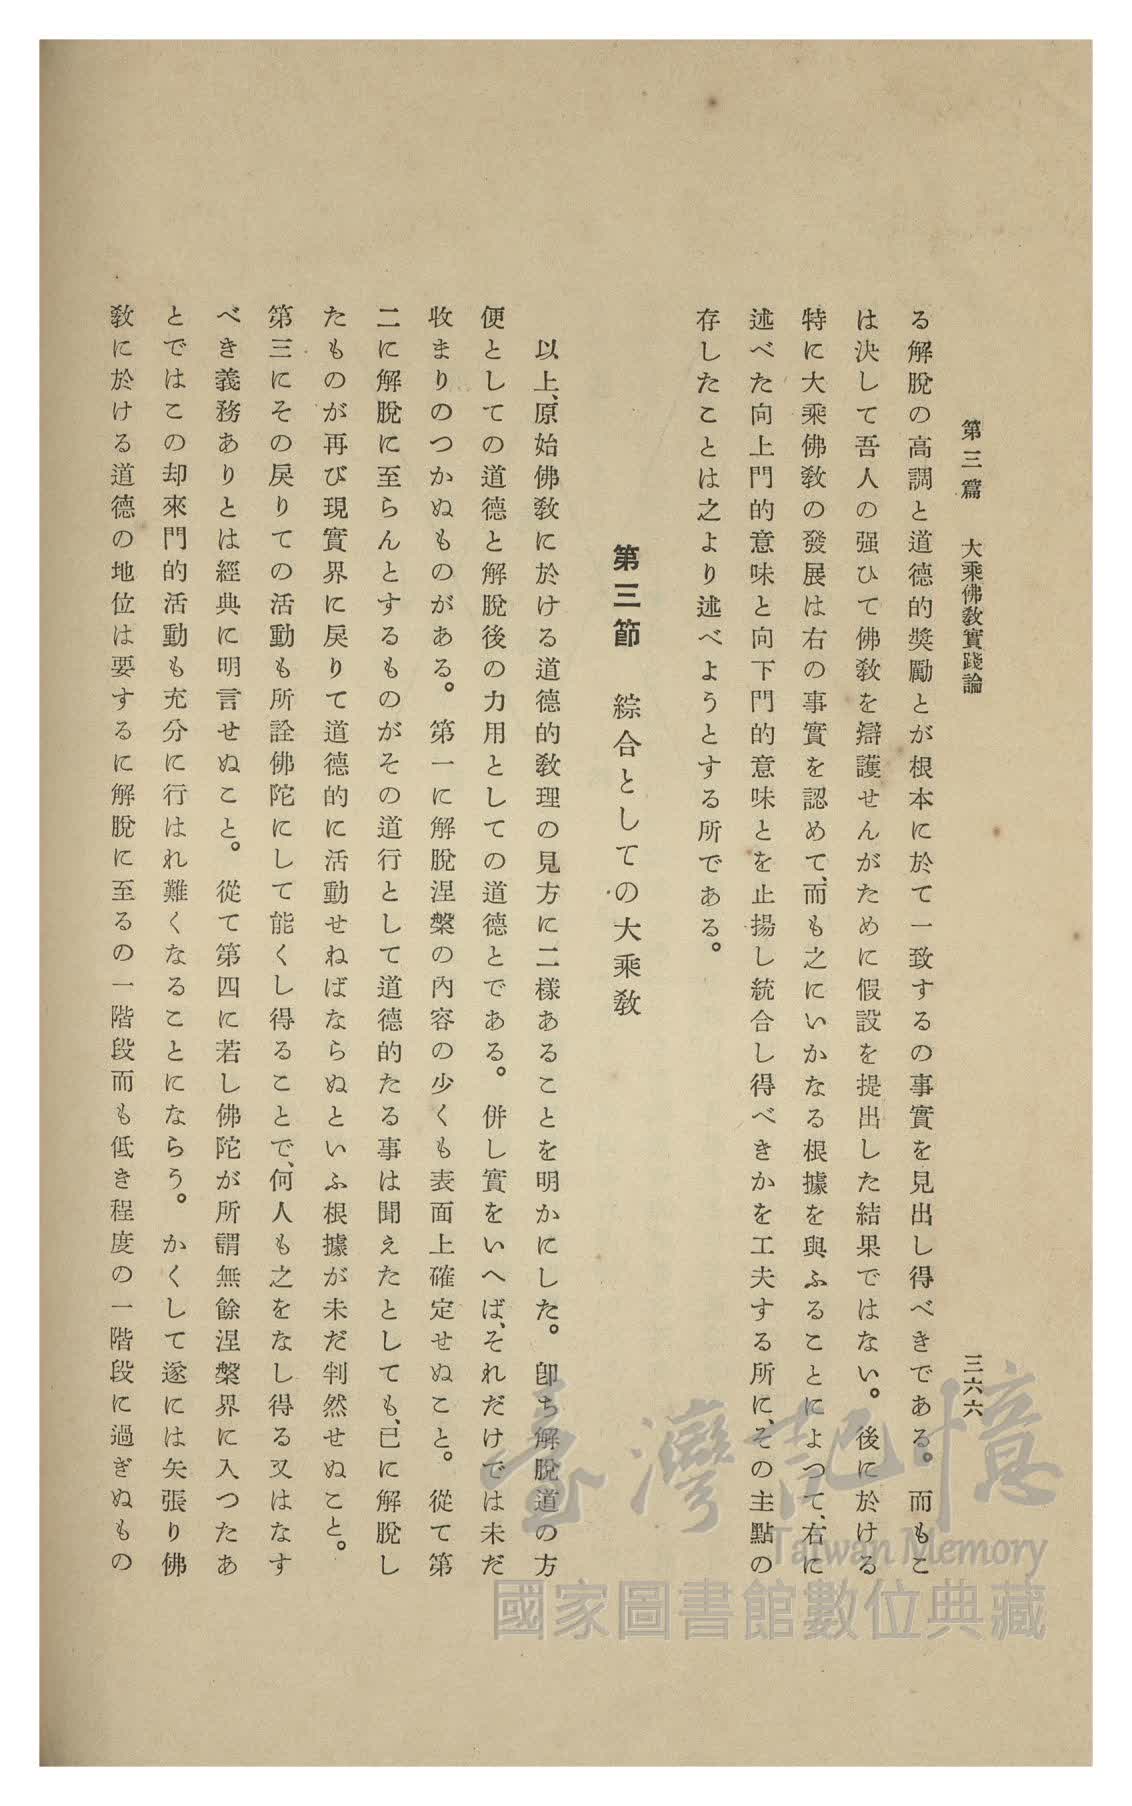 第三篇　大乘佛敎實踐論
三六六
る解脫の高調と道德的奬勵とが根本に於て一致するの事實を見出し得べきである。而もこ
は決して吾人の强ひて佛敎を辯護せんがために假設を提出した結果ではない。後に於ける
特に大乘佛敎の發展は右の事實を認めて、而も之にいかなる根據を與ふることによつて、右に
述べた向上門的意味と向下門的意味とを止揚し統合し得べきかを工夫する所に、その主點の
存したことは之より述べようとする所である。
第三節　綜合としての大乘敎
以上、原始佛敎に於ける道德的敎理の見方に二樣あることを明かにした。卽ち解脫道の方
便としての道德と解脫後の力用としての道德とである。併し實をいへば、それだけでは未だ
收まりのつかぬものがある。第一に解脫涅槃の內容の少くも表面上確定せぬこと。從て第
二に解脫に至らんとするものがその道行として道德的たる事は聞えたとしても、已に解脫し
たものが再び現實界に戾りて道德的に活動せねばならぬといふ根據が未だ判然せぬこと。
第三にその戾りての活動も所詮佛陀にして能くし得ることで、何人も之をなし得る又はなす
べき義務ありとは經典に明言せぬこと。從て第四に若し佛陀が所謂無餘涅槃界に入つたあ
とではこの却來門的活動も充分に行はれ難くなることにならう。かくして遂には矢張り佛
敎に於ける道德の地位は要するに解脫に至るの一階段而も低き程度の一階段に過ぎぬもの
臺灣記憶
Taiwan Memory
國家圖書館數位典藏